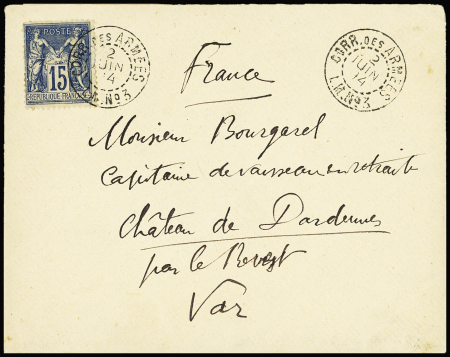 POSTE
15
RÉPUBLIQUE FRANÇAISE
CORR. DES ARMÉES
2
JUIN
14
L.M. No 3
CORR. DES ARMÉES
2
JUIN
14
L.M. No 3
France
Monsieur Bourgarel
Capitaine de vaisseau en retraite
Château de Dardennes
par le Revest
Var